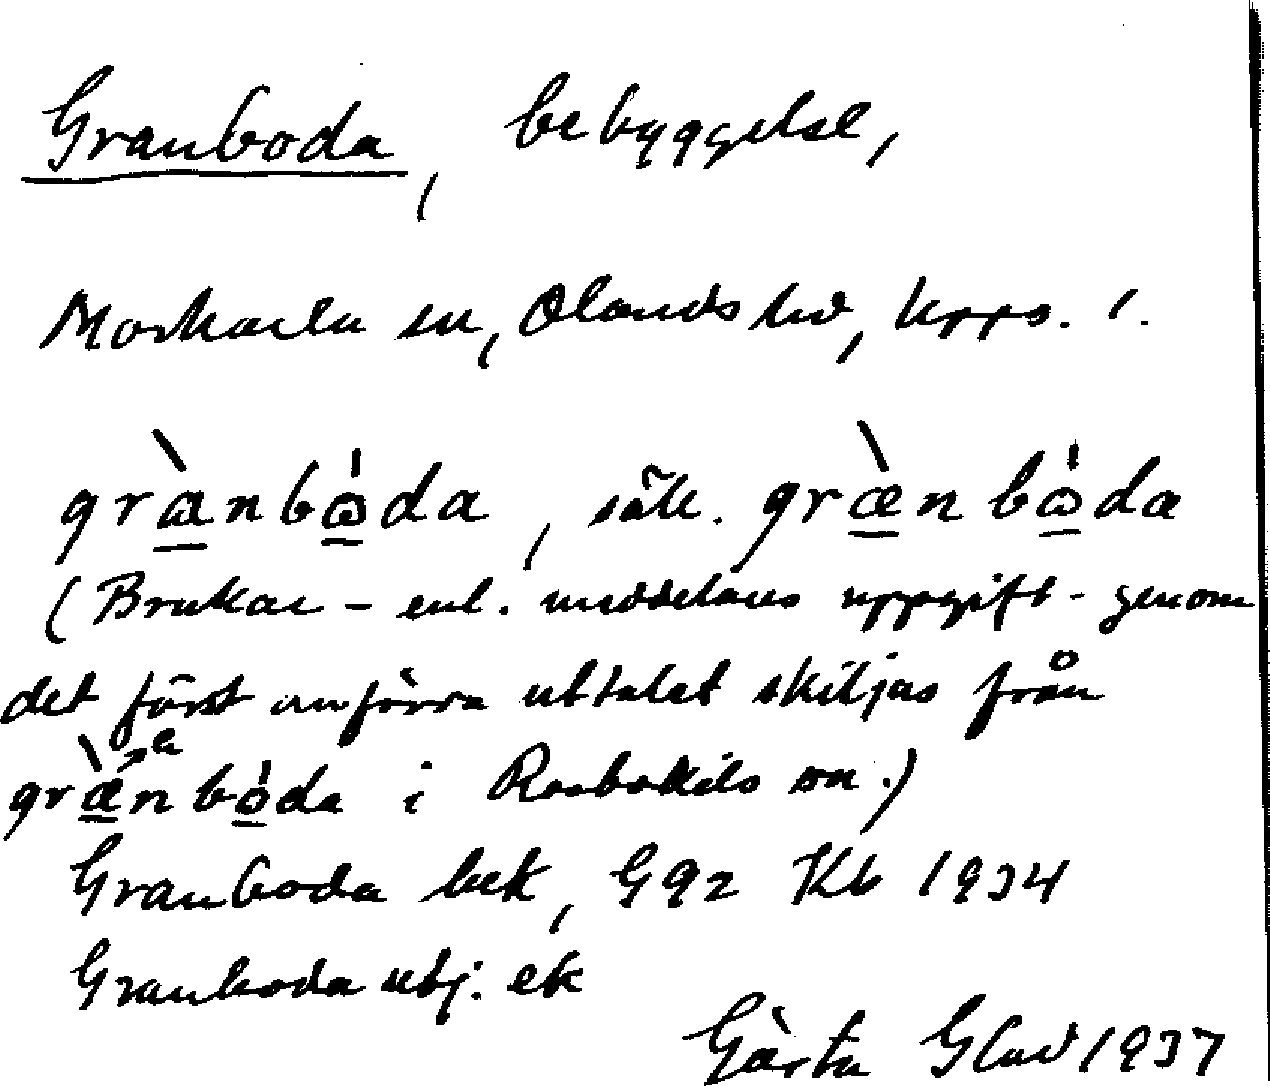 Granboda, bebyggelse,
Morkarla sn, Olands hd, Upps. l.
grànbòda, sält. græ̀nbòda
(Brukar – enl. meddelares uppgift – genom
det först anförda uttalet skiljas från
græ̀nbòda i Rasbokils sn.)
Granboda bek, G92 Kb 1934
Granboda utj. ek
Gärta Glad 1937